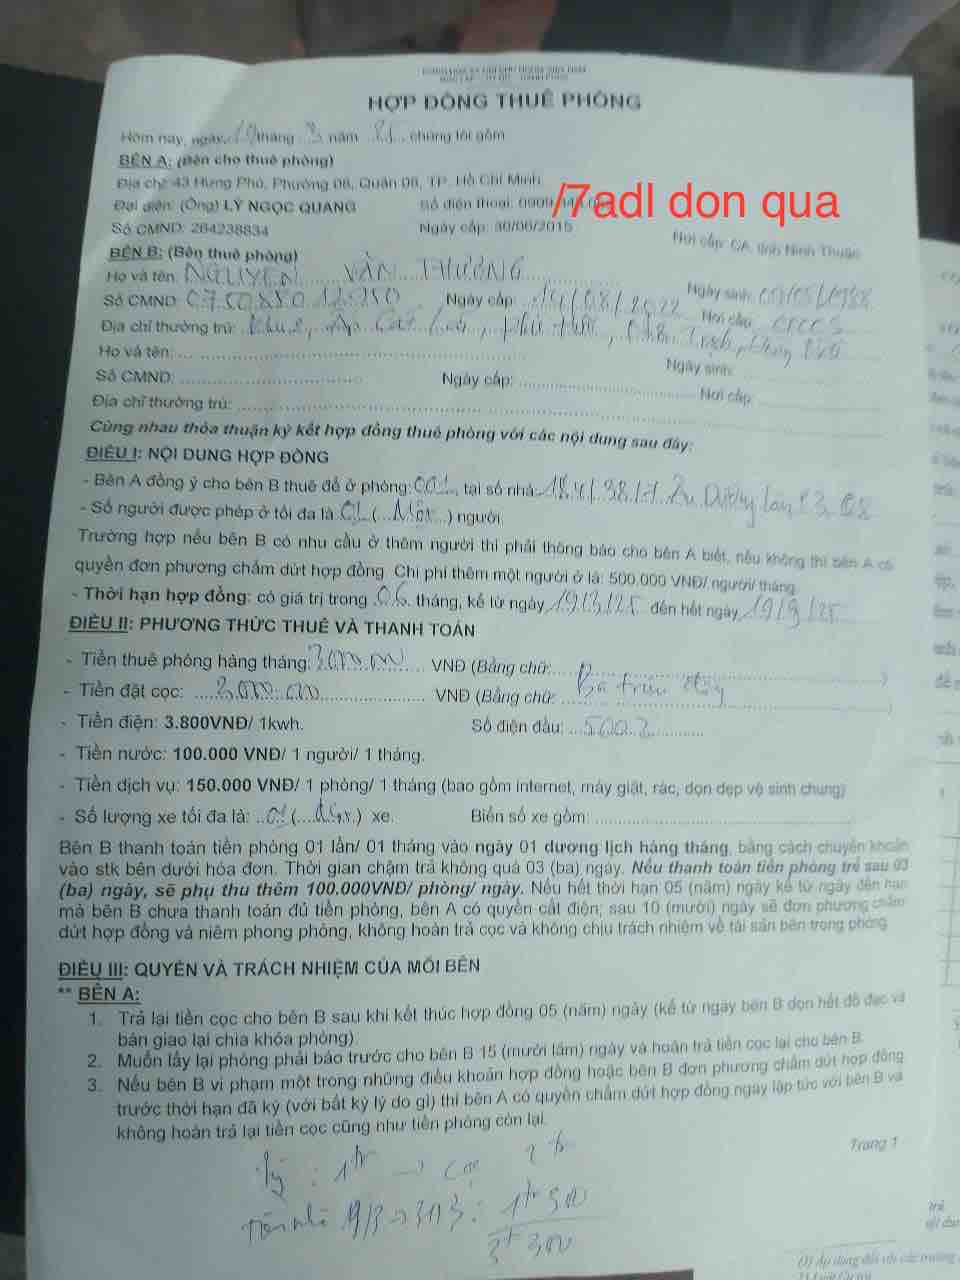 HỢP ĐỒNG THUÊ PHÒNG
Hôm nay, ngày 19 tháng 3 năm chúng tôi gồm
BÊN A: (Bên cho thuê phòng)
Địa chỉ: 43 Hưng Phú, Phường 08, Quận 08, TP. Hồ Chí Minh
Đại diện: (Ông) LÝ NGỌC QUANG Số điện thoại: 0909
/7adl don qua
Số CMND: 264238834 Ngày cấp: 30/06/2015 Nơi cấp: CA tỉnh Ninh Thuận
BÊN B: (Bên thuê phòng)
Họ và tên: NGUYEN VĂN THƯƠNG Ngày sinh:
Số CMND: Ngày cấp: 14/08/2022 Nơi cấp:
Địa chỉ thường trú:
Họ và tên: Ngày sinh:
Số CMND: Ngày cấp: Nơi cấp:
Địa chỉ thường trú:
Cùng nhau thỏa thuận ký kết hợp đồng thuê phòng với các nội dung sau đây:
ĐIỀU I: NỘI DUNG HỢP ĐỒNG
- Bên A đồng ý cho bên B thuê để ở phòng: tại số nhà: Dương
- Số người được phép ở tối đa là 01 (Một) người
Trường hợp nếu bên B có nhu cầu ở thêm người thì phải thông báo cho bên A biết, nếu không thì bên A có
quyền đơn phương chấm dứt hợp đồng. Chi phí thêm một người ở là: 500.000 VNĐ/ người/ tháng.
- Thời hạn hợp đồng: có giá trị trong 06 tháng, kể từ ngày 19/3/25 đến hết ngày 19/9/25
ĐIỀU II: PHƯƠNG THỨC THUÊ VÀ THANH TOÁN
- Tiền thuê phòng hàng tháng: 3.000.000 VNĐ (Bằng chữ: )
- Tiền đặt cọc: 3.000.000 VNĐ (Bằng chữ: Ba triệu )
- Tiền điện: 3.800VNĐ/ 1kwh. Số điện đầu:
- Tiền nước: 100.000 VNĐ/ 1 người/ 1 tháng.
- Tiền dịch vụ: 150.000 VNĐ/ 1 phòng/ 1 tháng (bao gồm internet, máy giặt, rác, dọn dẹp vệ sinh chung)
- Số lượng xe tối đa là: 01 (Một) xe. Biển số xe gồm:
Bên B thanh toán tiền phòng 01 lần/ 01 tháng vào ngày 01 dương lịch hàng tháng, bằng cách chuyển khoản
vào stk bên dưới hóa đơn. Thời gian chậm trả không quá 03 (ba) ngày. Nếu thanh toán tiền phòng trễ sau 03
(ba) ngày, sẽ phụ thu thêm 100.000VNĐ/ phòng/ ngày. Nếu hết thời hạn 05 (năm) ngày kể từ ngày đến hạn
mà bên B chưa thanh toán đủ tiền phòng, bên A có quyền cắt điện; sau 10 (mười) ngày sẽ đơn phương chấm
dứt hợp đồng và niêm phong phòng, không hoàn trả cọc và không chịu trách nhiệm về tài sản bên trong phòng
ĐIỀU III: QUYỀN VÀ TRÁCH NHIỆM CỦA MỖI BÊN
** BÊN A:
1. Trả lại tiền cọc cho bên B sau khi kết thúc hợp đồng 05 (năm) ngày (kể từ ngày bên B dọn hết đồ đạc và
bàn giao lại chìa khóa phòng)
2. Muốn lấy lại phòng phải báo trước cho bên B 15 (mười lăm) ngày và hoàn trả tiền cọc lại cho bên B.
3. Nếu bên B vi phạm một trong những điều khoản hợp đồng hoặc bên B đơn phương chấm dứt hợp đồng
trước thời hạn đã ký (với bất kỳ lý do gì) thì bên A có quyền chấm dứt hợp đồng ngay lập tức với bên B và
không hoàn trả lại tiền cọc cũng như tiền phòng còn lại.
Trang 1
1tr → cọc 2tr
19/3 → 31/3: 1tr 300
3tr 300
(1) Áp dụng đối với các trường